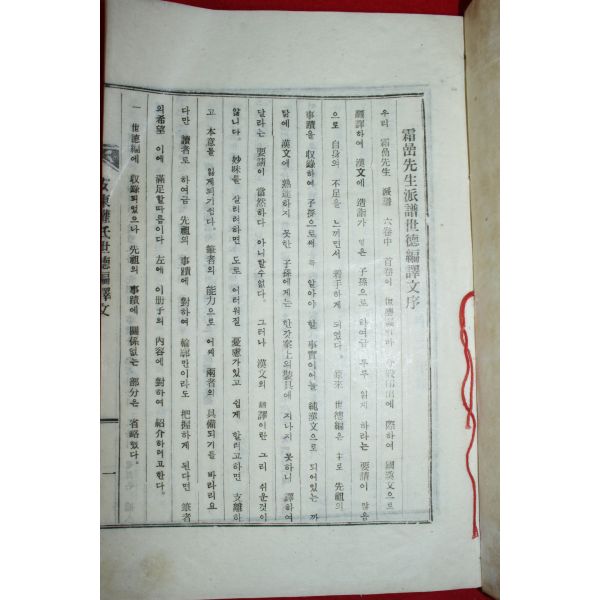 霜嵒先生派譜世德編譯文序
우리 霜嵒先生 派譜 六卷中 首卷이 世德編이라 際하여 國漢文으로
飜譯하여 漢文에 造詣가 옅은 子孫으로 하여금 두루 알게 하라는 要請이 많음
으로 自身의 不足을 느끼면서 着手하게 되었다. 原來 世德編은 主로 先祖의
事蹟을 收錄하여 子孫으로써 꼭 알아야 할 事實이어늘 純漢文으로 되어있는 까
닭에 漢文에 熟達하지 못한 子孫에게는 한갓 案上의 裝具에 지나지 못하니 譯하여
달라는 要請이 當然하다 아니할수없다. 그러나 漢文의 飜譯이란 그리 쉬운것이
않니다. 妙味를 살리려하면 도로 어려워질 憂慮가있고 쉽게 할려고하면 支離하
고 本意를 잃게되기쉽다. 筆者의 能力으로 어찌 兩者의 具備되기를 바라리요
다만 讀者로 하여금 先祖의 事蹟에 對하여 輪廓만이라도 把握하게 된다면 筆者
의希望 이에 滿足할따름이다 左에 이册子의 內容에 對하여 紹介하려고한다.
一 世德編에 收錄되었으나 先祖의 事蹟에 關係없는 部分은 省略했다.
安東權氏世德編譯文